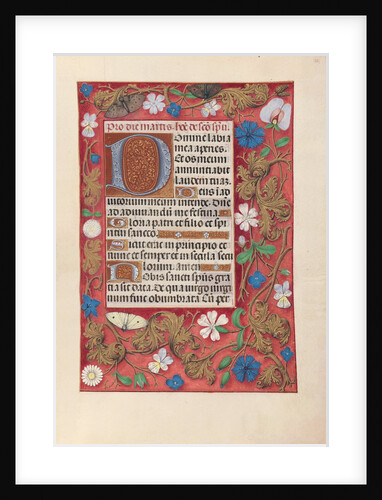 Pro die martis. hoē de sco spū.
Domine labia
mea aperies.
Et os meum
annunciabit
laudem tuaz.
Deus i ad
iutorium meum intende. Dñe
ad adiuuandū me festina.
Gloria patri et filio et spi
ritui sancto.
Sicut erat in principio et
nunc et semper et in secula secu
lorum. amen
Nobis sancti spūs gra
tia sit data. De qua uirgo uirgi
num fuit obumbrata. Cū per